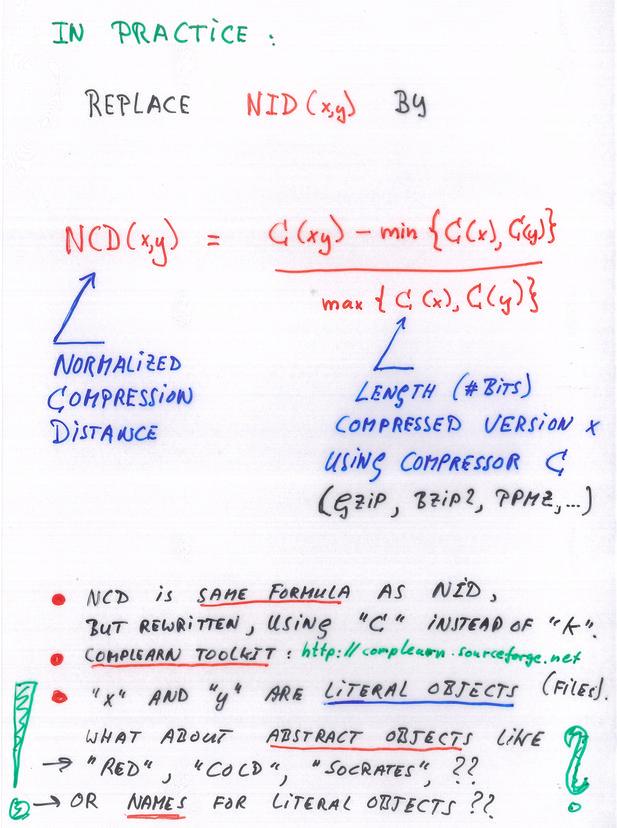 IN PRACTICE :
REPLACE NID(x,y) BY
NCD(x,y) = C(xy) - min {C(x), C(y)}
max {C(x), C(y)}
NORMALIZED
COMPRESSION
DISTANCE
LENGTH (#BITS)
COMPRESSED VERSION X
USING COMPRESSOR C
(GZIP, BZIP2, PPMZ,...)
• NCD IS SAME FORMULA AS NID,
BUT REWRITTEN, USING "C" INSTEAD OF "K".
• COMPLEARN TOOLKIT : http://complearn.sourceforge.net
• "X" AND "Y" ARE LITERAL OBJECTS (FILES).
! WHAT ABOUT ABSTRACT OBJECTS LIKE ?
→ "RED", "COLD", "SOCRATES", ??
→ OR NAMES FOR LITERAL OBJECTS ??